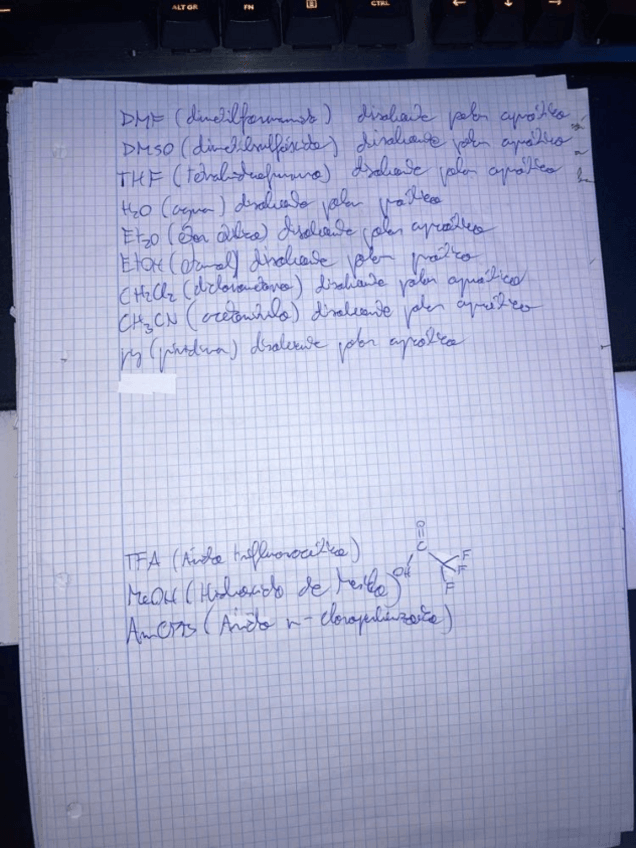 ALT GR FN CTRL ← ↓ →
DMF (dimetilformamida) disolvente polar aprótico
DMSO (dimetilsulfóxido) disolvente polar aprótico
THF (tetrahidrofurano) disolvente polar aprótico
H₂O (agua) disolvente polar prótico
Et₂O (éter etílico) disolvente polar aprótico
EtOH (etanol) disolvente polar prótico
CH₂Cl₂ (diclorometano) disolvente polar aprótico
CH₃CN (acetonitrilo) disolvente polar aprótico
py (piridina) disolvente polar aprótico
O
C
TFA (Ácido trifluoroacético) OH F F F
MeOH (Hidróxido de Metilo)
(Ácido